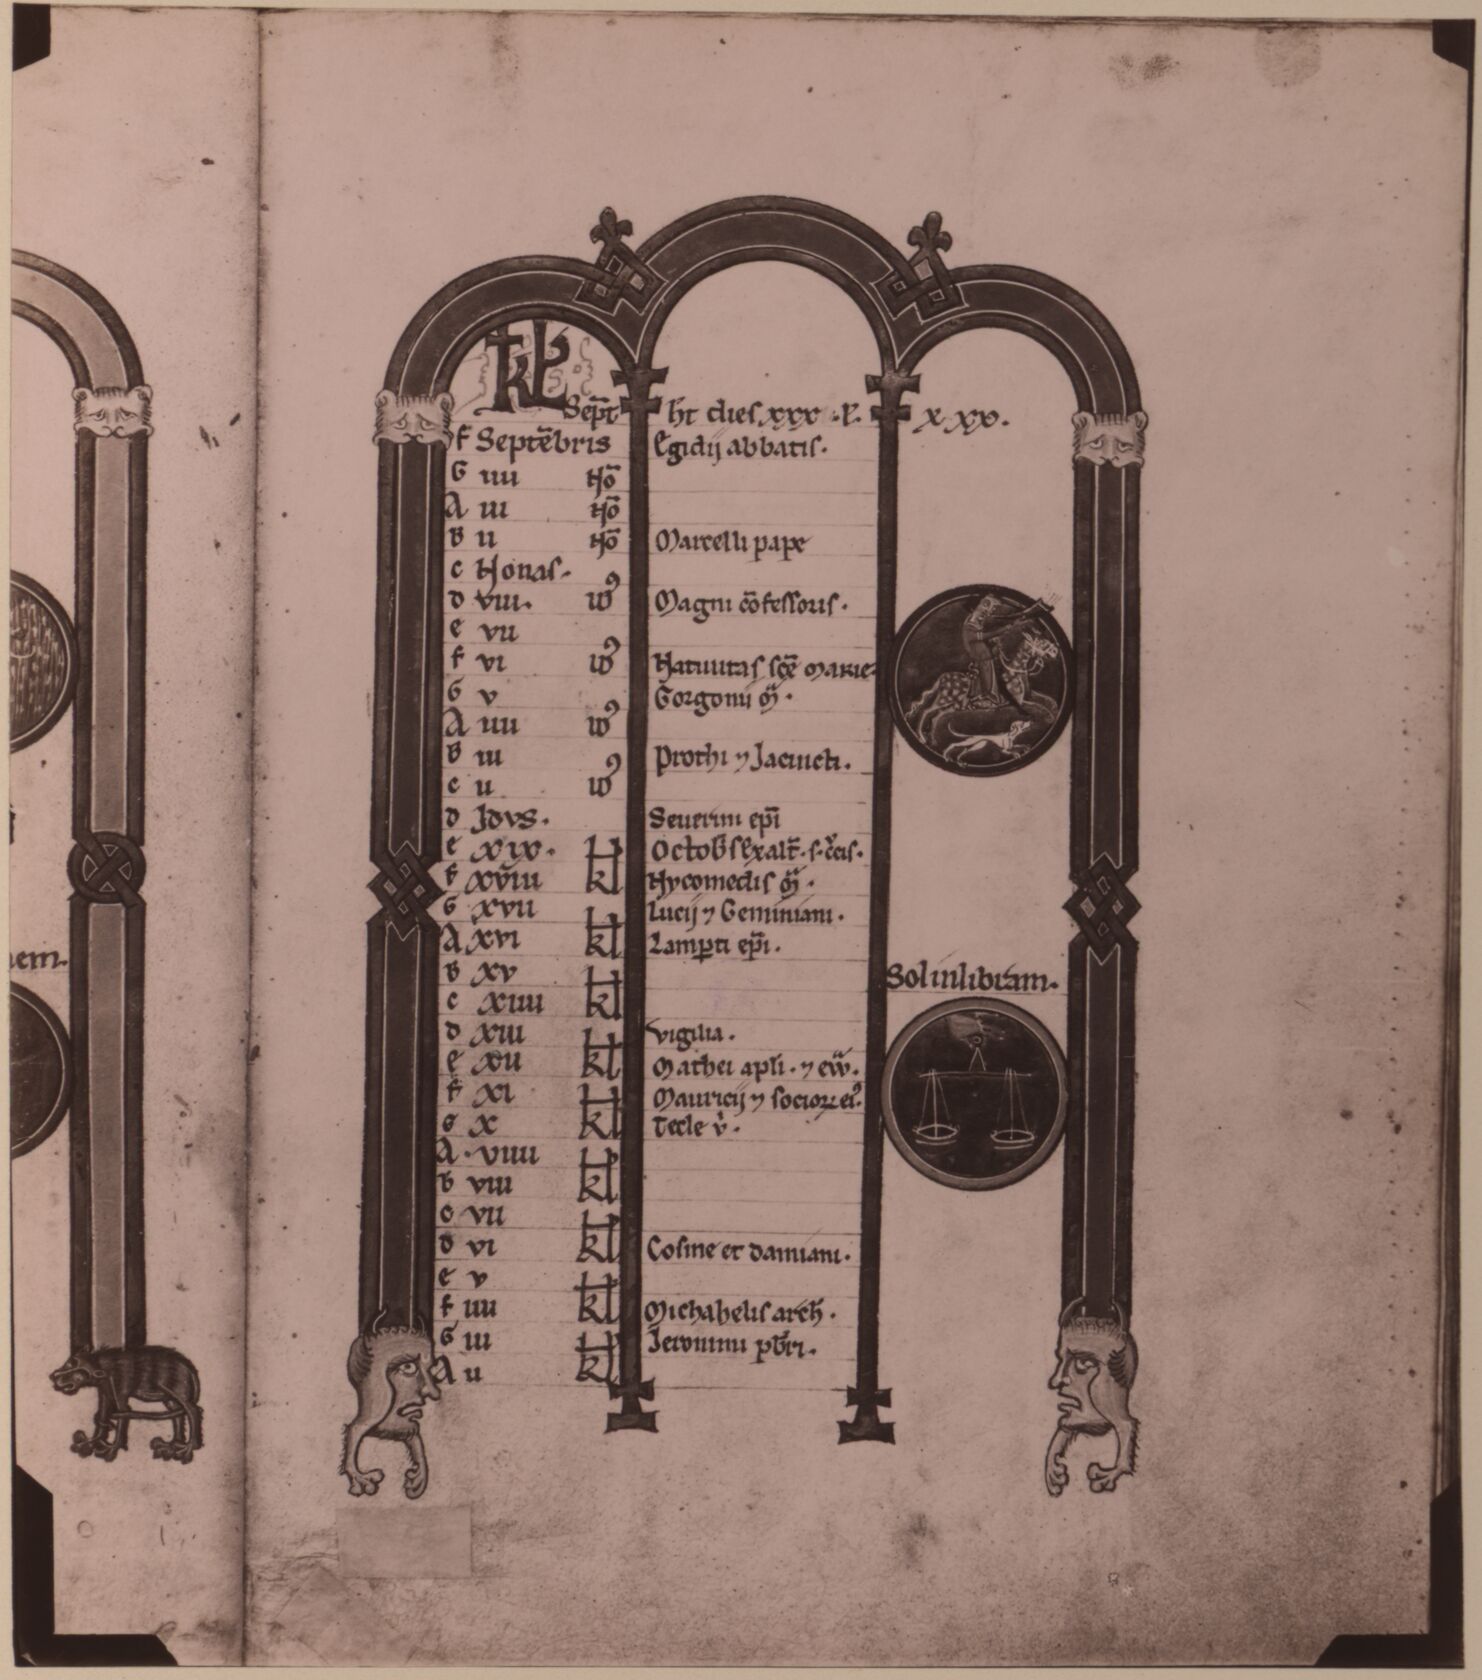 KL
Septͤ ht dies xxx · L · xxx.
F Septēbris Egidij abbatis.
G iiii Nō
A iii Nō
B ii Nō Marcelli pape
C Nonas.
D viii. id9 Magni cōfessoris.
E vii
F vi id9 Natiuitas scē Marie.
G v Gorgonii m̄.
A iiii id9
B iii Prothi ⁊ Jacincti.
C ii id9
D Jdvs. Seuerini epī
E xix. kl Octob Exalt̄. s. c̄cis.
F xviii Nycomedis m̄.
G xvii kl Lucij ⁊ Geminiani.
A xvi Lamp̄ti epī.
B xv kl
C xiiii
D xiii kl vigilia.
E xii Mathei apłi. ⁊ ew̄.
F xi kl Mauricij ⁊ socioꝝ ei9.
G x Tecle v̄.
A. viiii kl
B viii
C vii kl
D vi Cosme et damiani.
E v kl
F iiii Michahelis arch̄.
G iii kl Jeronimi pb̄ri.
A ii
Sol in libram.
em.